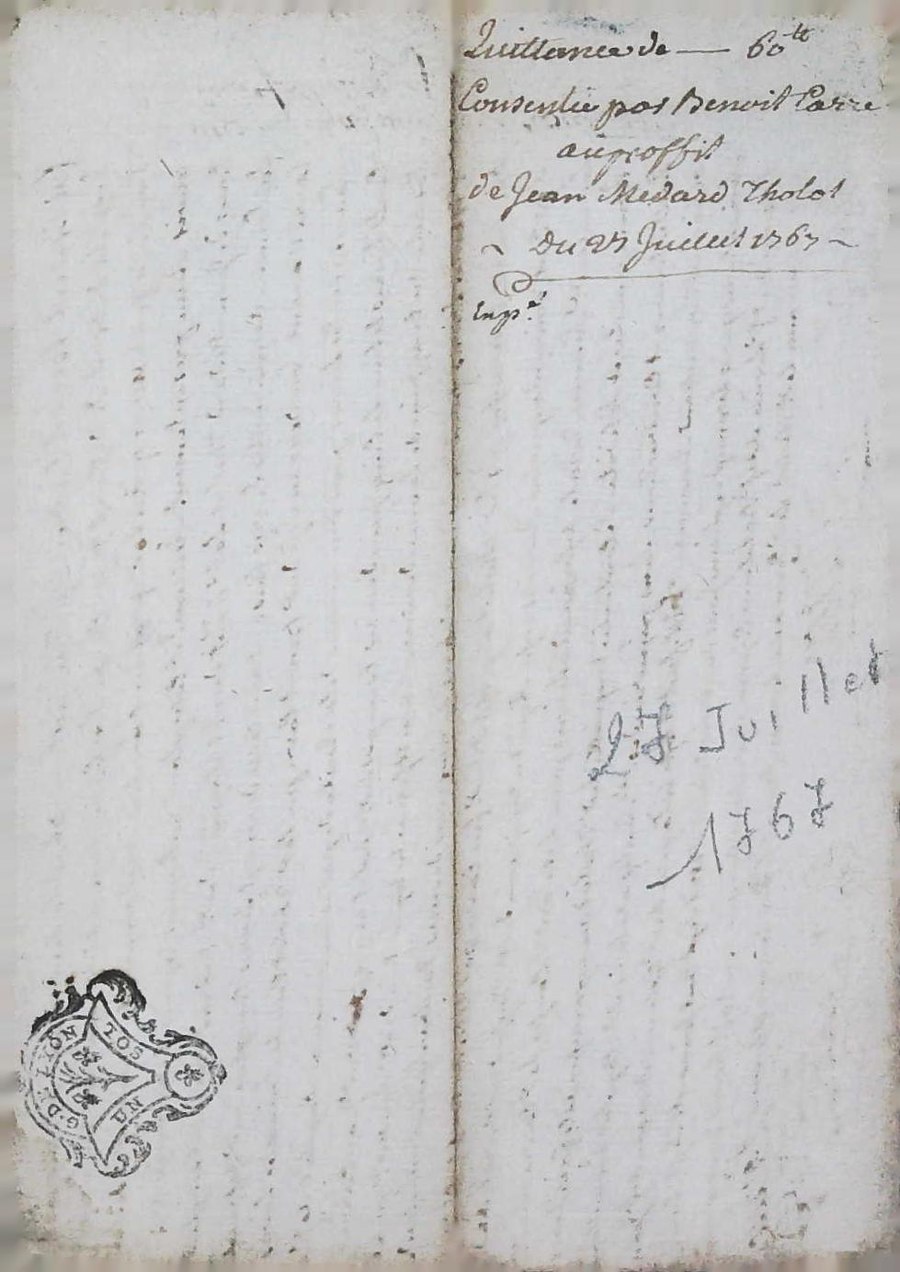 Quittance de — 60 tt
Consentie par Benoit Carre
au proffit
de Jean Medard Tholot
~ Du 27 Juillet 1767 ~
Exp.é
27 Juillet
1767
G. DE LYON
UN SOL